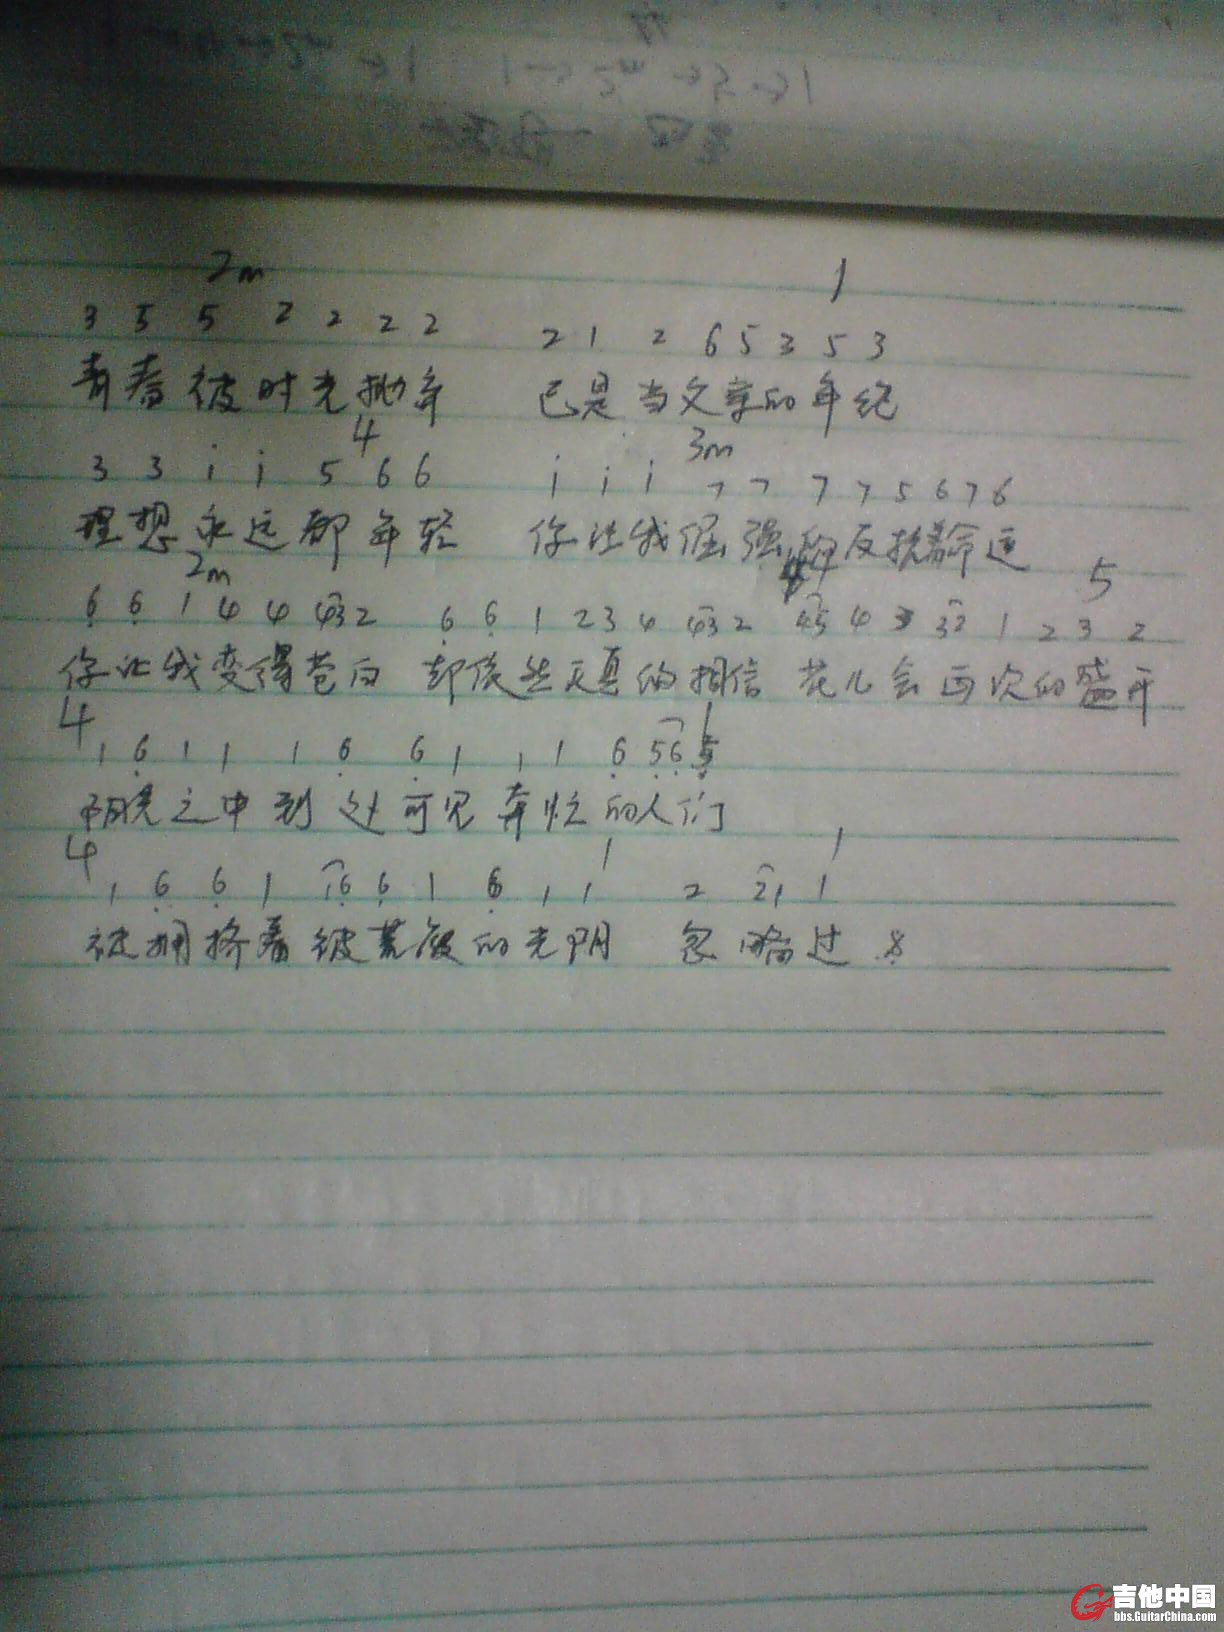 2m 1
3 5 5 2 2 2 2 2 1 2 6 5 3 5 3
青春被时光抛弃 已是当父亲的年纪
4 3m
3 3 i i 5 6 6 i i i 7 7 7 7 5 6 7 6
理想永远都年轻 你让我倔强的反抗着命运
2m 4 5
6 6 1 4 4 43 2 6 6 1 2 3 4 43 2 45 4 3 32 1 2 3 2
你让我变得苍白 却依然天真的相信 花儿会再次的盛开
4 1
1 6 1 1 1 6 6 1 1 1 6 56 5
阳光之中到处可见奔忙的人们
4 1 1
1 6 6 1 16 6 1 6 1 1 2 21 1
被拥挤着被荒废的光阴 忽略过
吉他中国
bbs.GuitarChina.com